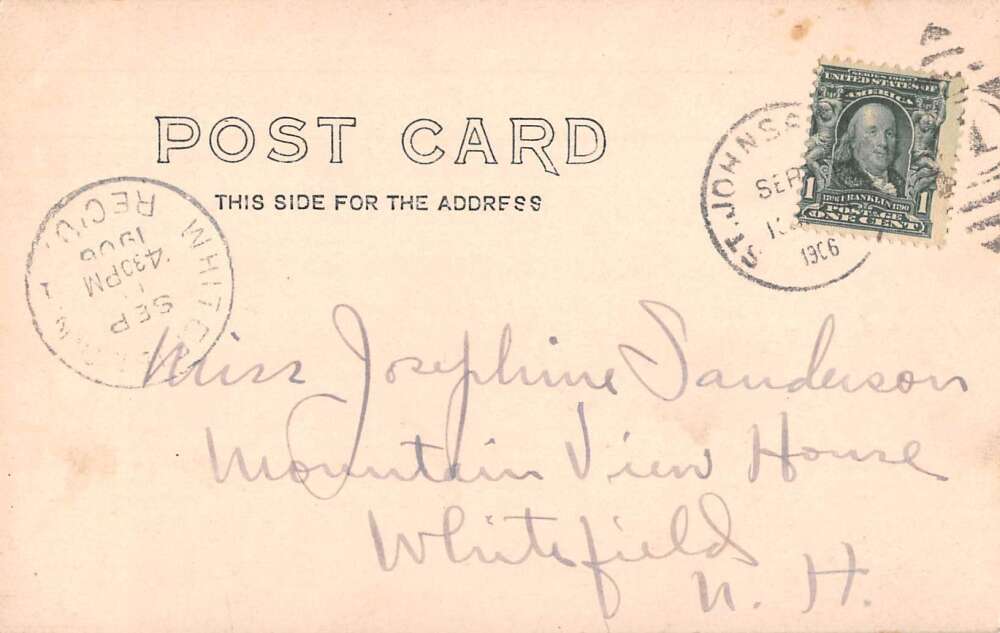 POST CARD
THIS SIDE FOR THE ADDRESS
SERIES 1902
UNITED STATES OF
AMERICA
1 1706 FRANKLIN 1790 1
POSTAGE
ONE CENT
ST. JOHNS
SEP
1906
REC'D.
1906
4 30 PM
SEP
Miss Josephine Sanderson
Mountain View House
Whitefield
N. H.